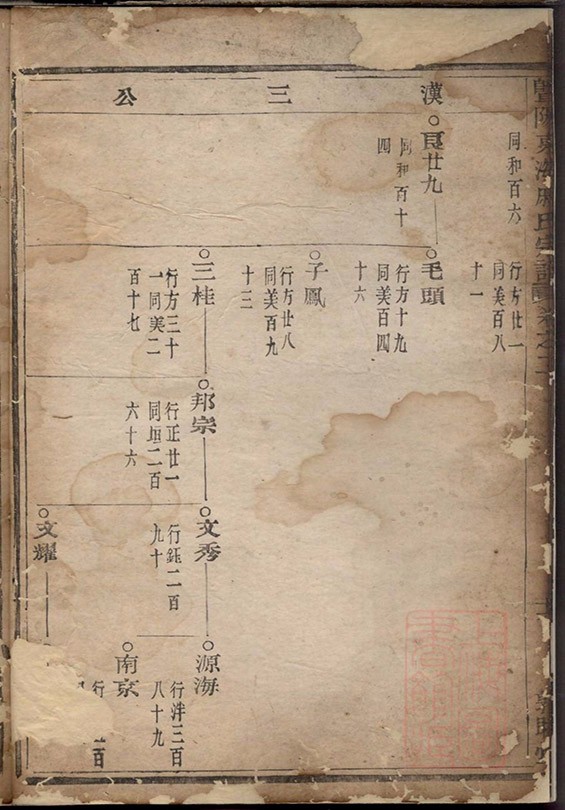 漢三公
同和百六
行方廿一
同美百八
十一
良廿九
同和百十
四
毛頭
行方十九
同美百四
十六
子鳳
行方廿八
同美百九
十三
三桂
行方三十
一同美二
百十七
邦宗
行正廿一
同垣二百
六十六
文秀
行鈺二百
九十
文耀
源海
行泮三百
八十九
南京
行
百